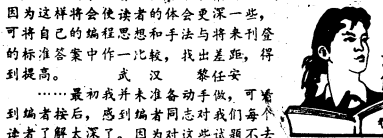 因为这样将会使读者的体会更深一些，
可将自己的编程思想和手法与将来刊登
的标准答案中作一比较，找出差距，得
到提高。 武 汉 黎任安
……最初我并未准备动手做，可看
到编者按后，感到编者同志对我们每个
读者了解太深了。因为对这些试题不去